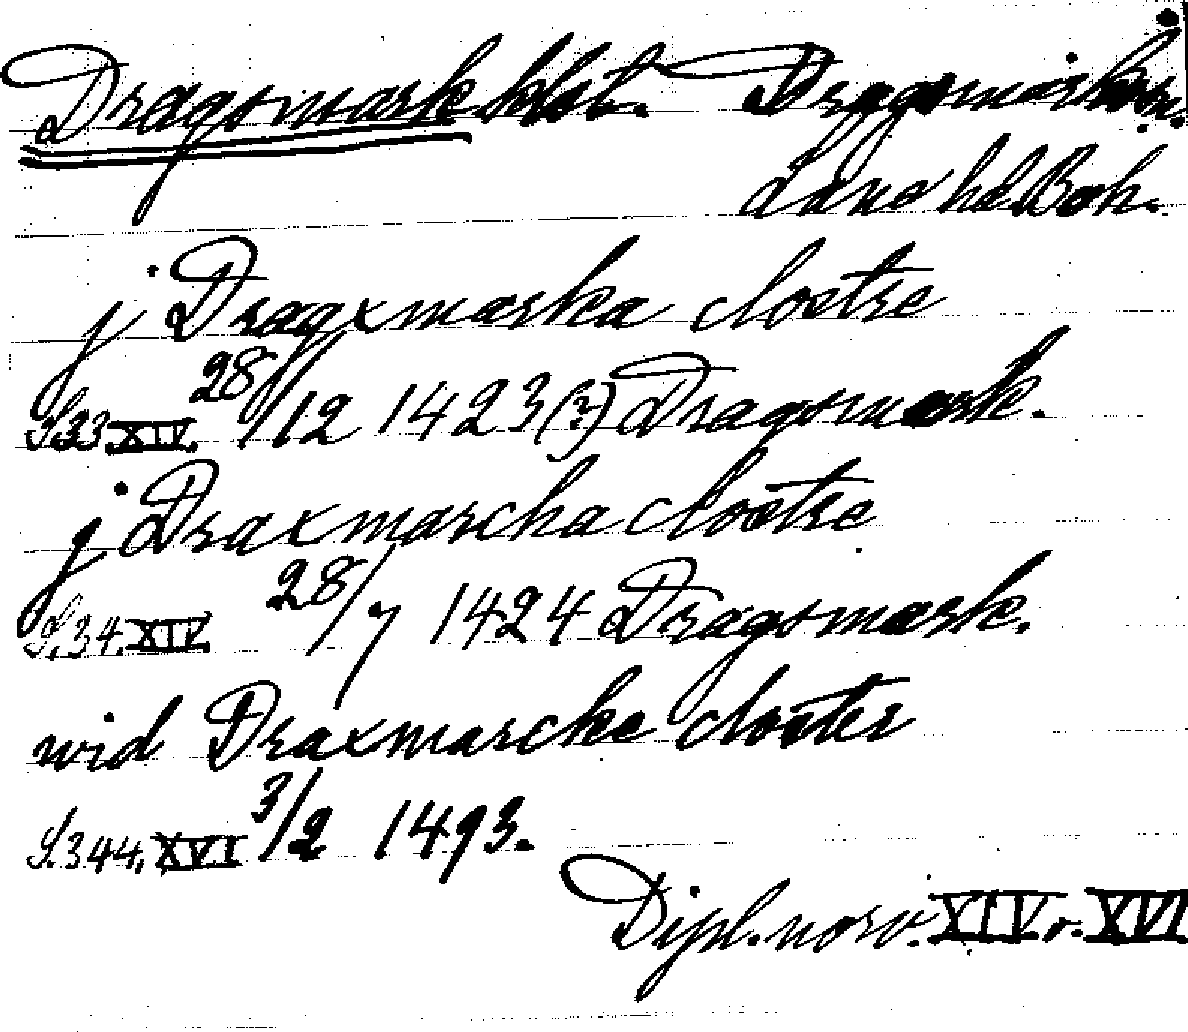 Dragsmark klst. Dragsmarks sn.
Lane hd Boh.
j Dragxmarka clostre
S.33 XIV. 28/12 1423(?) Dragsmark.
j Draxmarcha clostre
S.34. XIV. 28/7 1424 Dragsmark.
wid Draxmarcke closter
S.344, XVI 3/2 1493.
Dipl. norv. XIV o. XVI